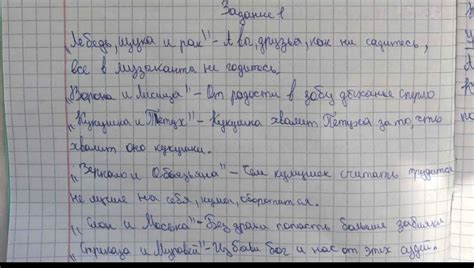 Задание 1
„Лебедь, щука и рак" - А вы, друзья, как ни садитесь,
все в музыканты не годитесь
„Ворона и Лисица" - От радости в зобу дыханье спёрло
„Кукушка и Петух" - Кукушка хвалит Петуха за то, что
хвалит он кукушку.
„Зеркало и Обезьяна" - Чем кумушек считать трудится
не лучше на себя, кума, оборотится.
„Слон и Моська" - Без драки попасть в большие забияки
„Стрекоза и Муравей" - Избави бог и нас от этих судей.